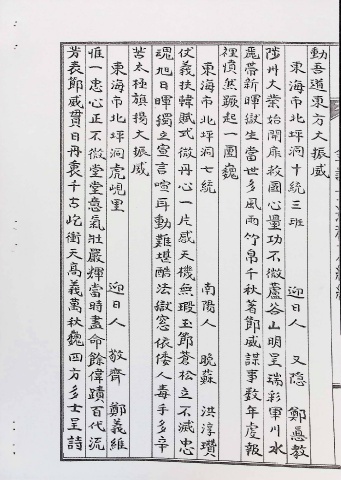 動吾道東方大振威
東海市北坪洞十統三班 迎日人 又隱 鄭憲教
陟州大業始開扉救國心量功不微蘆谷山明呈瑞彩軍川水
麗帶新暉獻生當世多風雨竹帛千秋著節威謀事數年虔報
裡憤然蹶起一團巍
東海市北坪洞七統 南陽人 晩蘇 洪淳瓚
仗義扶韓賦弍微丹心一片感天機無瑕玉節蒼松立不滅忠
魂旭日暉獨立宣言喧耳動難堪酷法獄窓依倭人毒手多辛
苦太極旗揚大振威
東海市北坪洞虎峴里 迎日人 敬齊 鄭義維
惟一忠心正不微堂堂意氣壯嚴輝當時盡命餘偉蹟百代流
芳表節威貫日丹衷千古屹衝天高義萬秋巍四方多士呈詩